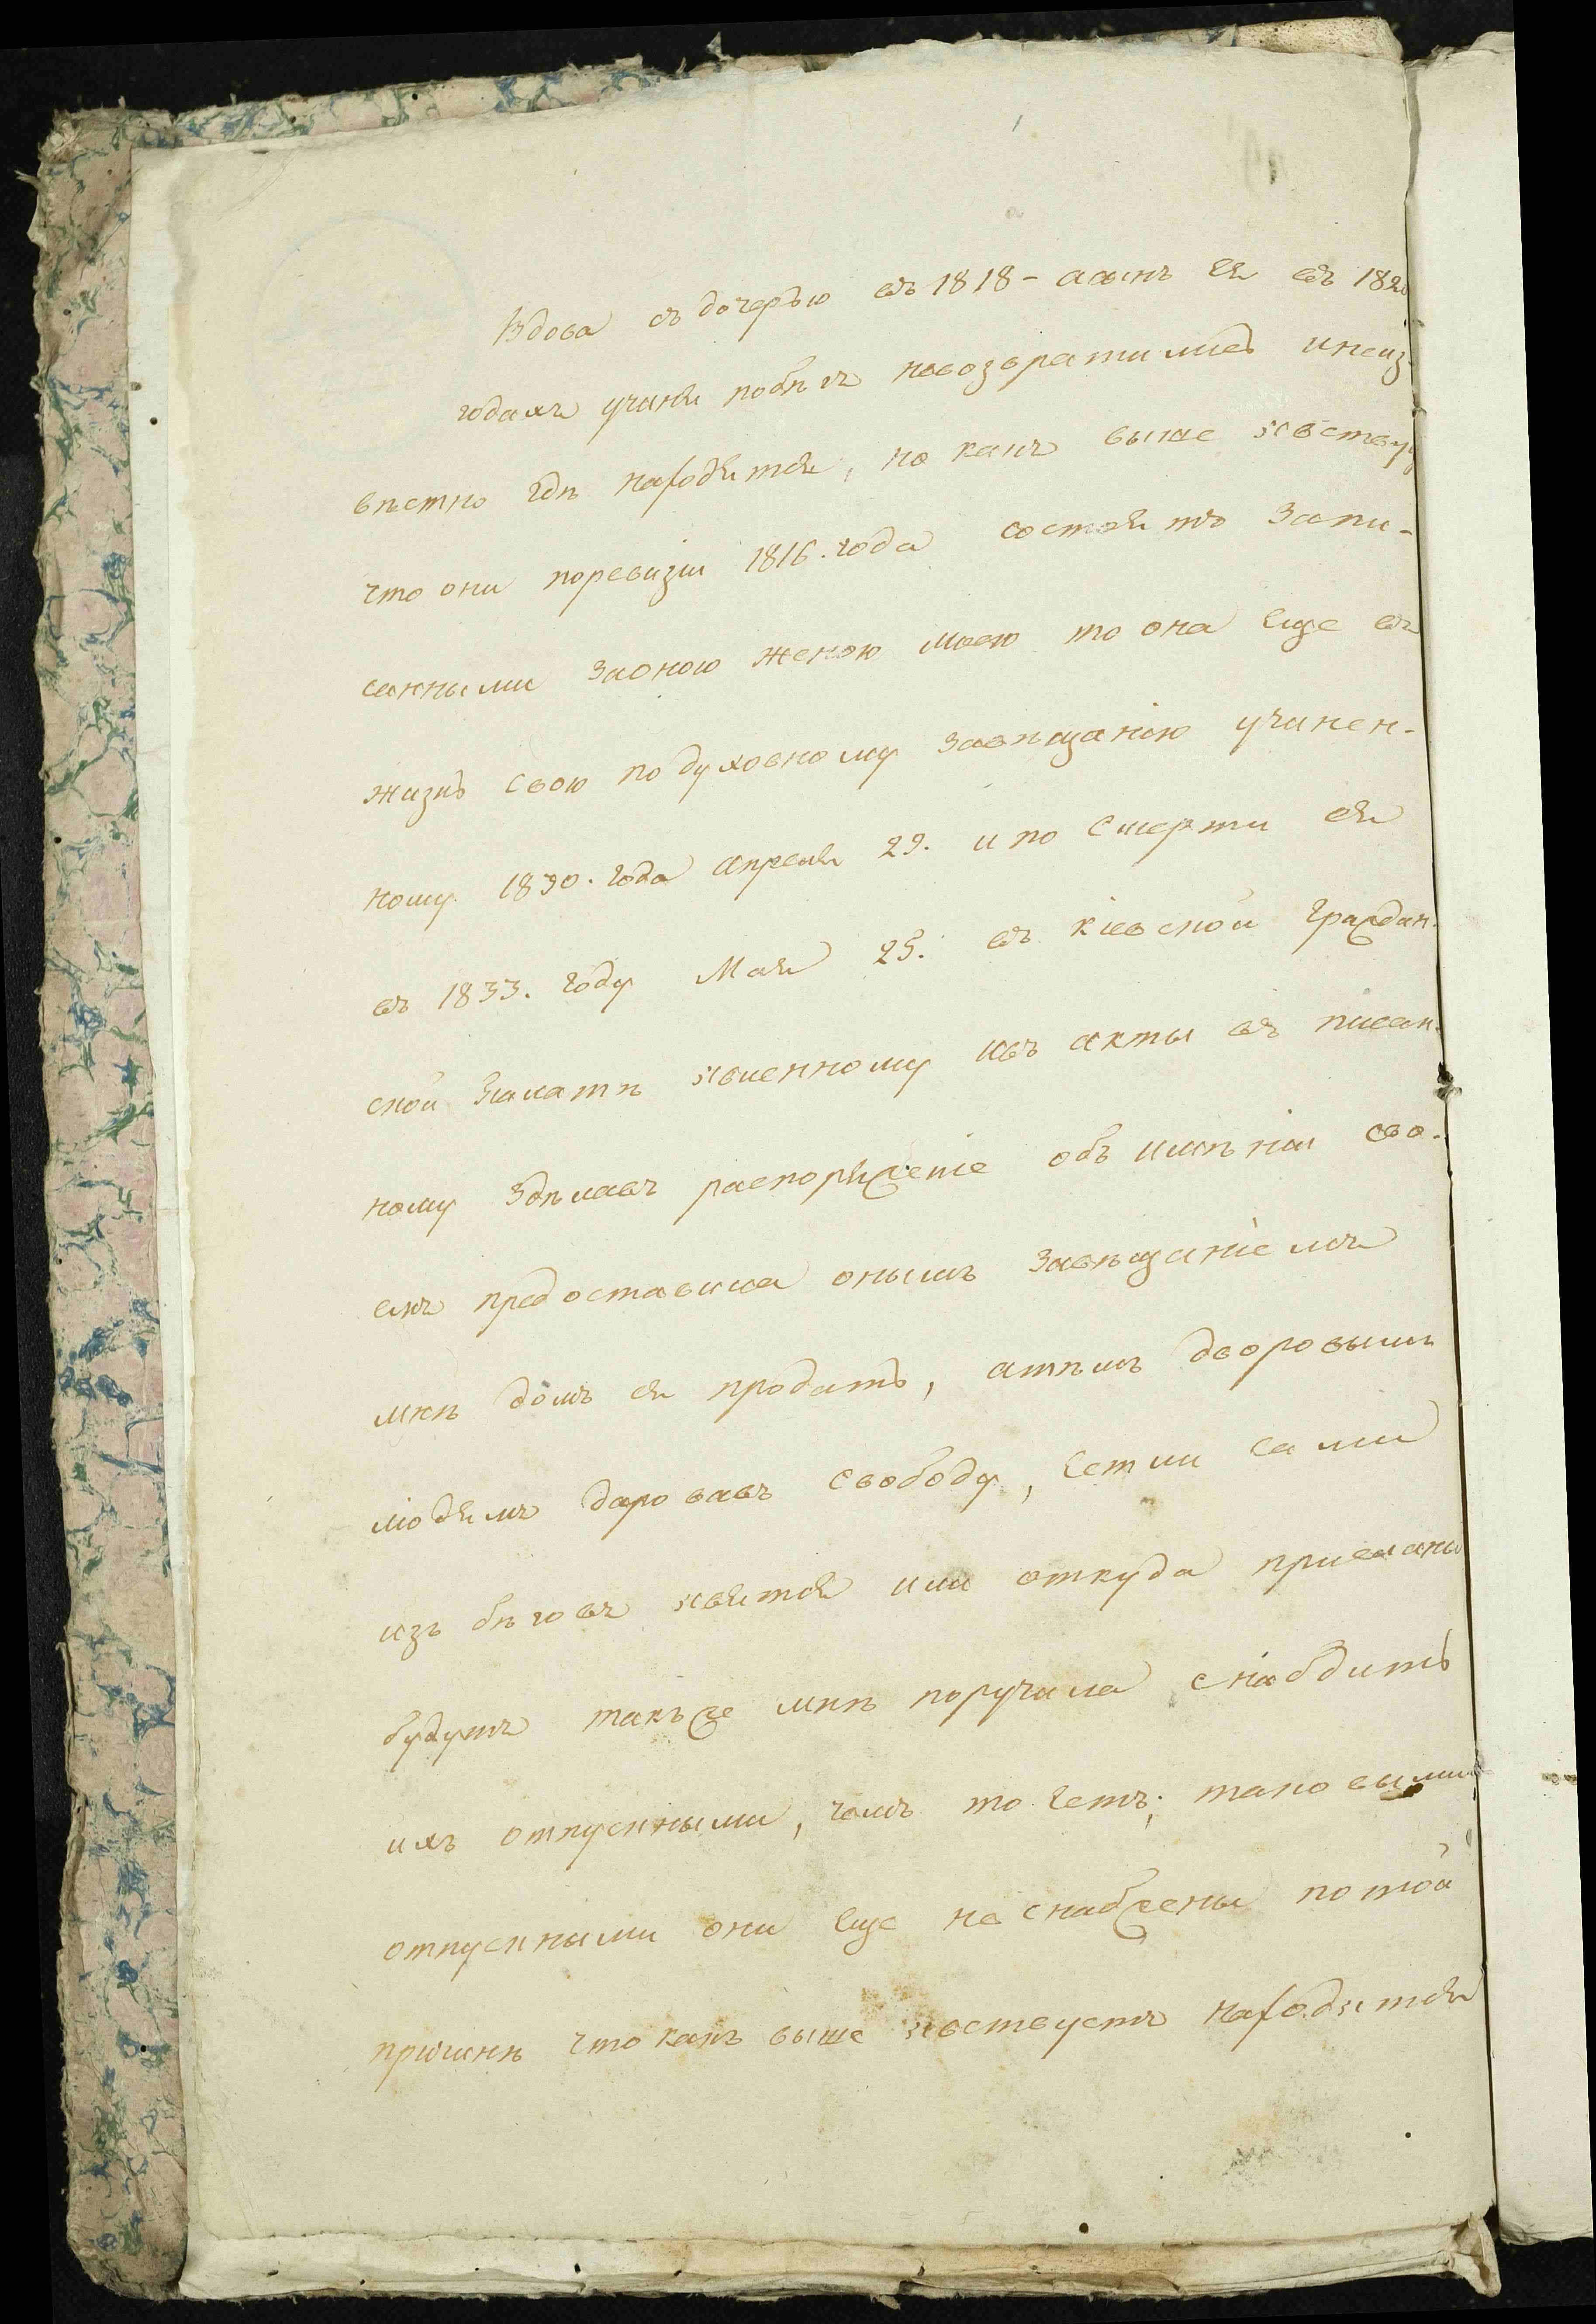 Вдова съ дочерью въ 1818 - асынъ ея въ 1820
годахъ учиня побѣгъ невозвратились инеиз-
вѣстно гдѣ находятся, но какъ выше явствуе
что они поревизіи 1816. года состоятъ запи-
санными заоною женою моею то она еще въ
жизнь свою по духовному завѣщанію учинен-
ному 1830. года апреля 29. и по смерти ея
въ 1833. году Мая 25. въ кіевской граждан-
ской Палатѣ явленному ивъ акты въ писан-
ному здѣлавъ распоряженіе объ имѣніи сво-
емъ предоставила онымъ завѣщаніемъ
мнѣ домъ ея продать, атѣмъ дворовымъ
людямъ даровавъ свободу, естли сами
изъ бѣговъ явятся или откуда присланы
будутъ такъже мнѣ поручила снабдить
ихъ отпускными, чемъ то естъ; таковыми
отпускными они еще не снабжены по той
причинѣ что какъ выше явствуетъ находятся